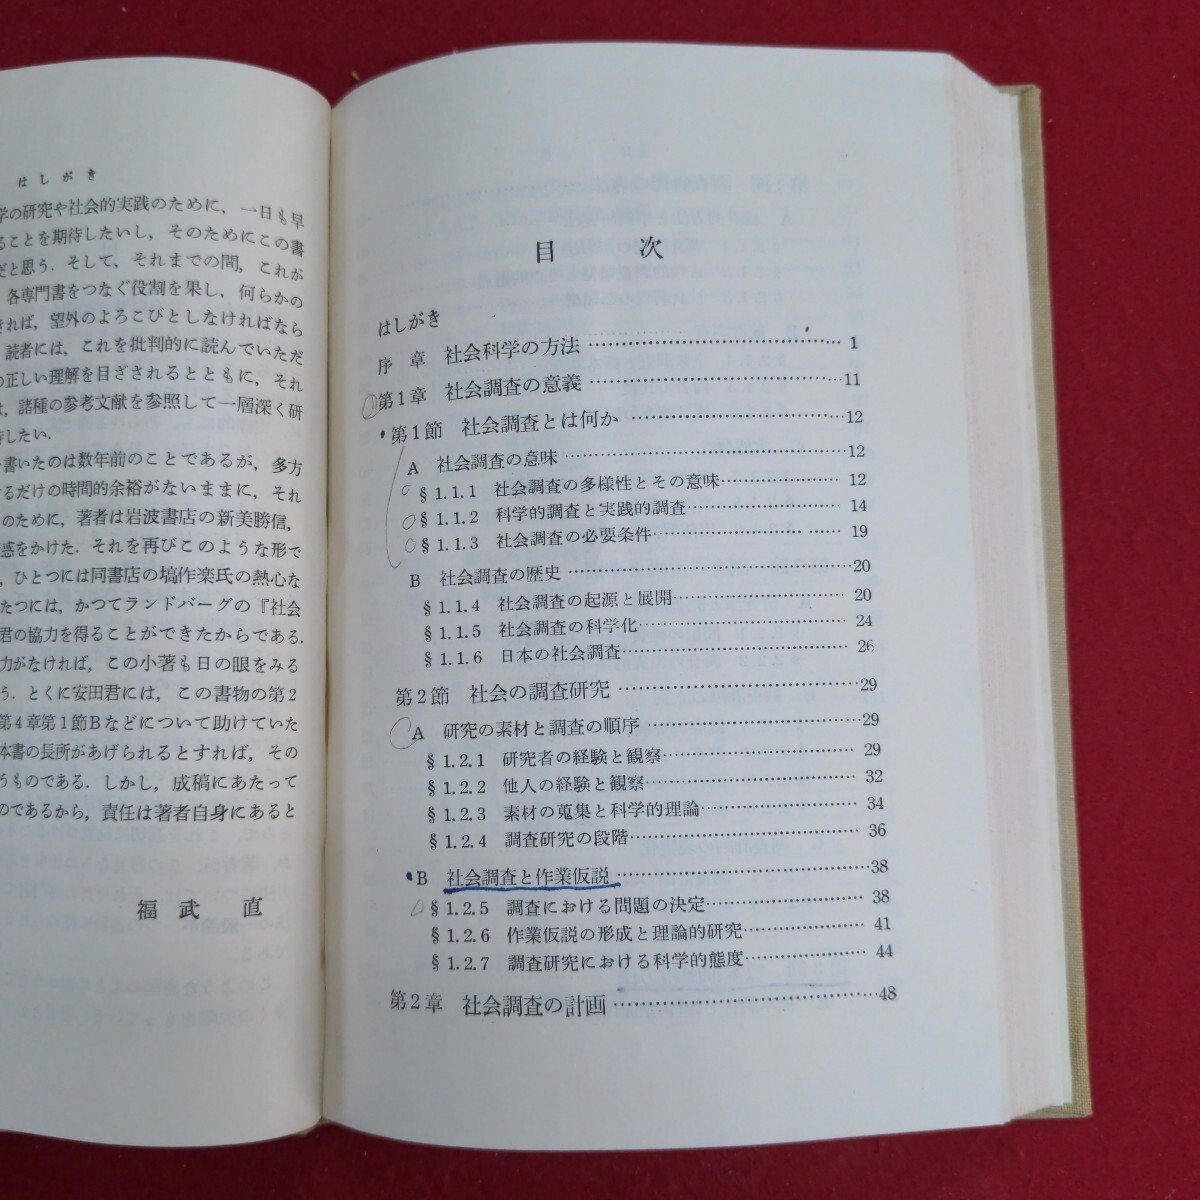 はしがき
学の研究や社会的実践のために，一日も早
ることを期待したいし，そのためにこの書
だと思う．そして，それまでの間，これが
各専門書をつなぐ役割を果し，何らかの
れば，望外のよろこびとしなければなら
読者には，これを批判的に読んでいただ
の正しい理解を目ざされるとともに，それ
は，諸種の参考文献を参照して一層深く研
したい．
書いたのは数年前のことであるが，多方
るだけの時間的余裕がないままに，それ
のために，著者は岩波書店の新美勝信，
惑をかけた．それを再びこのような形で
，ひとつには同書店の塙作楽氏の熱心な
たつには，かつてランドバーグの『社会
君の協力を得ることができたからである．
力がなければ，この小著も日の眼をみる
う．とくに安田君には，この書物の第2
第4章第1節Bなどについて助けていた
本書の長所があげられるとすれば，その
うものである．しかし，成稿にあたって
のであるから，責任は著者自身にあると
福武 直
目 次
はしがき
序 章 社会科学の方法 1
第1章 社会調査の意義 11
第1節 社会調査とは何か 12
A 社会調査の意味 12
§1.1.1 社会調査の多様性とその意味 12
§1.1.2 科学的調査と実践的調査 14
§1.1.3 社会調査の必要条件 19
B 社会調査の歴史 20
§1.1.4 社会調査の起源と展開 20
§1.1.5 社会調査の科学化 24
§1.1.6 日本の社会調査 26
第2節 社会の調査研究 29
A 研究の素材と調査の順序 29
§1.2.1 研究者の経験と観察 29
§1.2.2 他人の経験と観察 32
§1.2.3 素材の蒐集と科学的理論 34
§1.2.4 調査研究の段階 36
B 社会調査と作業仮説 38
§1.2.5 調査における問題の決定 38
§1.2.6 作業仮説の形成と理論的研究 41
§1.2.7 調査研究における科学的態度 44
第2章 社会調査の計画 48